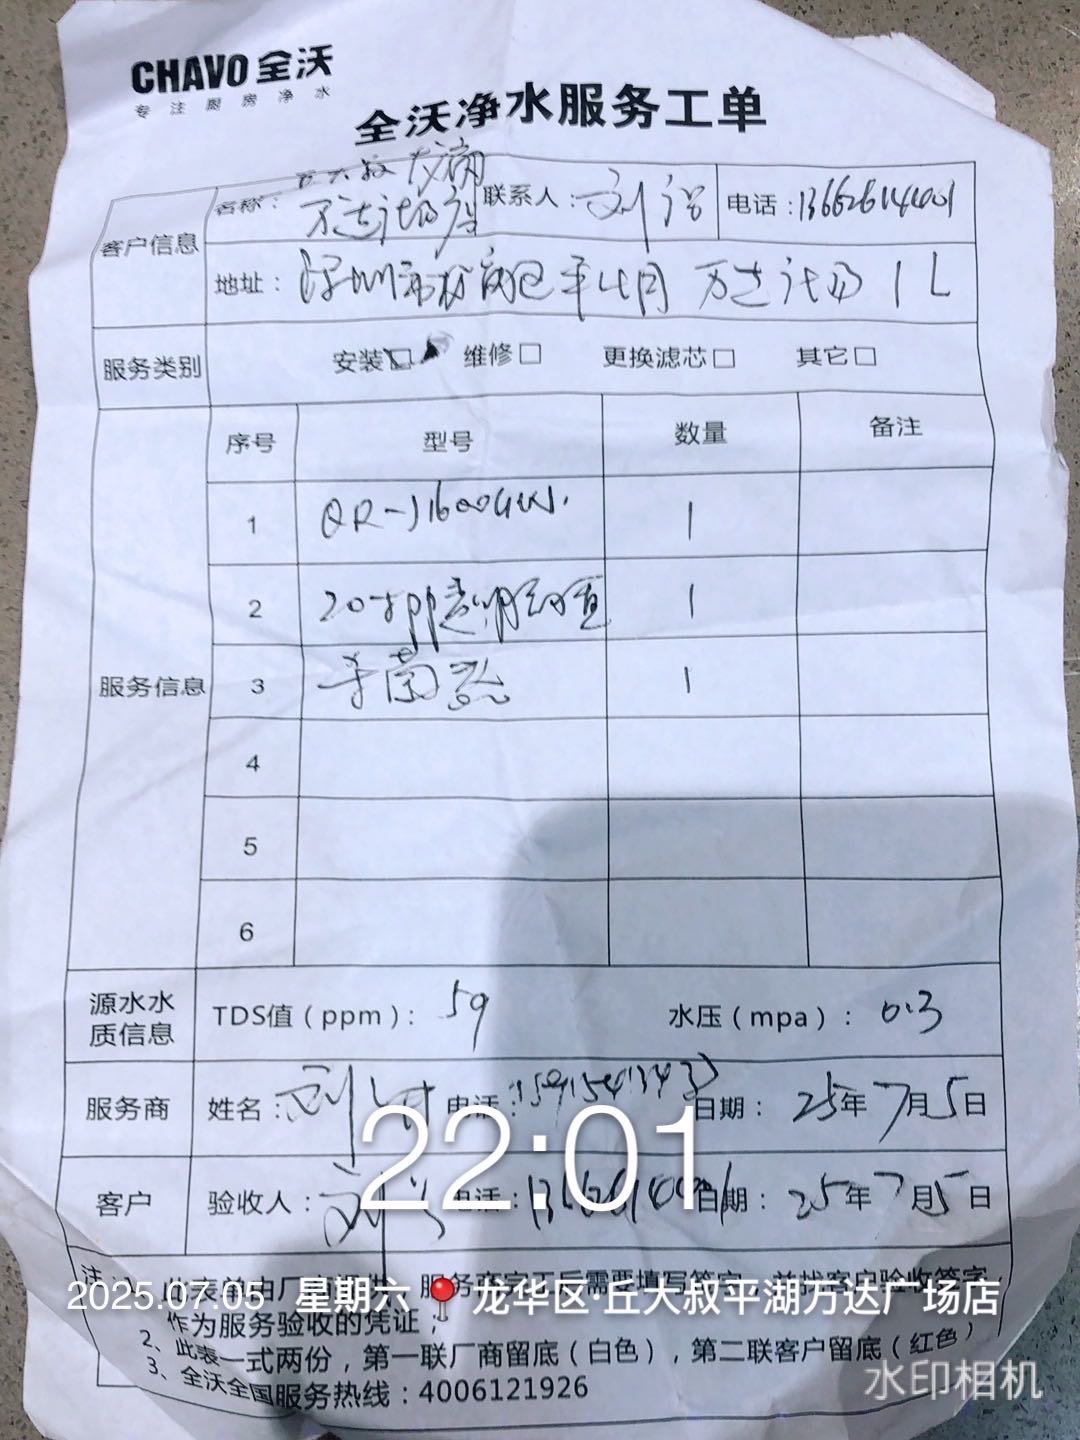 CHAVO 全沃
专注厨房净水
全沃净水服务工单
客户信息
名称：丘大叔 平湖
万达广场店
联系人：刘
电话：13662614401
地址：深圳市龙岗区平湖万达广场1L
服务类别
安装☑ 维修□ 更换滤芯□ 其它□
服务信息
序号 型号 数量 备注
1 QR-J1600GW. 1
2 20寸pp透明 1
3 杀菌器 1
4
5
6
源水水质信息
TDS值（ppm）：59 水压（mpa）：0.3
服务商 姓名：刘 电话： 日期：25年7月5日
客户 验收人：刘 电话： 日期：25年7月5日
22:01
注
此表单由厂 服务商完工后需要填写签字，并找客户验收签字
作为服务验收的凭证；
2、此表一式两份，第一联厂商留底（白色），第二联客户留底（红色）
3、全沃全国服务热线：4006121926
2025.07.05 星期六 龙华区·丘大叔平湖万达广场店
水印相机